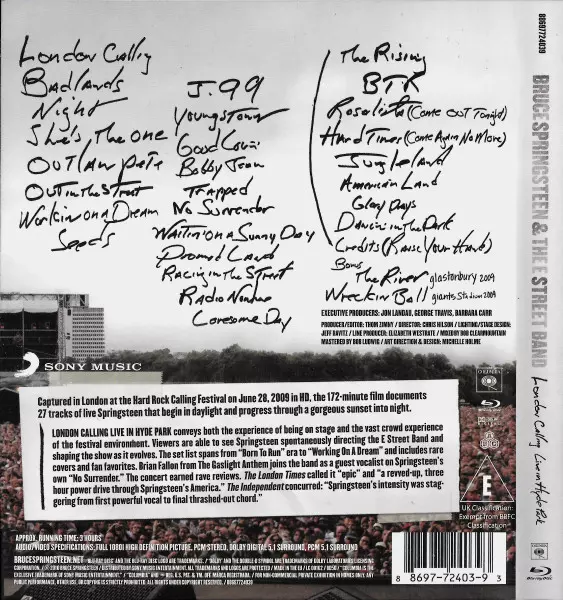 London Calling
Badlands
Night
She's The One
Outlaw Pete
Out in the Street
Workin on a Dream
Seeds
J. 99
Youngstown
Good Lovin'
Bobby Jean
Trapped
No Surrender
Waitin' on a Sunny Day
Promised Land
Racing in the Street
Radio Nowhere
Lonesome Day
The Rising
BTR
Rosalita (Come out Tonight)
Hard Times (Come Again No More)
Jungleland
American Land
Glory Days
Dancin' in the Dark
Credits (Raise Your Hand)
Bonus
The River glastonbury 2009
Wreckin Ball giants Stadium 2009
EXECUTIVE PRODUCERS: JON LANDAU, GEORGE TRAVIS, BARBARA CARR
PRODUCER/EDITOR: THOM ZIMNY / DIRECTOR: CHRIS HILSON / LIGHTING/STAGE DESIGN:
JEFF RAVITZ / LINE PRODUCER: ELIZABETH WESTRATE / MIXED BY BOB CLEARMOUNTAIN
MASTERED BY BOB LUDWIG / ART DIRECTION & DESIGN: MICHELLE HOLME
SONY MUSIC
Captured in London at the Hard Rock Calling Festival on June 28, 2009 in HD, the 172-minute film documents
27 tracks of live Springsteen that begin in daylight and progress through a gorgeous sunset into night.
LONDON CALLING LIVE IN HYDE PARK conveys both the experience of being on stage and the vast crowd experience
of the festival environment. Viewers are able to see Springsteen spontaneously directing the E Street Band and
shaping the show as it evolves. The set list spans from "Born To Run" era to "Working On A Dream" and includes rare
covers and fan favorites. Brian Fallon from The Gaslight Anthem joins the band as a guest vocalist on Springsteen's
own "No Surrender." The concert earned rave reviews. The London Times called it "epic" and "a revved-up, three
hour power drive through Springsteen's America." The Independent concurred: "Springsteen's intensity was stag-
gering from first powerful vocal to final thrashed-out chord."
APPROX. RUNNING TIME: 3 HOURS
AUDIO/VIDEO SPECIFICATIONS: FULL 1080I HIGH DEFINITION PICTURE, PCM STEREO, DOLBY DIGITAL 5.1 SURROUND, PCM 5.1 SURROUND
BRUCESPRINGSTEEN.NET
COLUMBIA
E
UK Classification:
Exempt from BBFC
Classification
8 86977-24039 3
88697724039
BRUCE SPRINGSTEEN & THE E STREET BAND
London Calling Live in Hyde Park
COLUMBIA